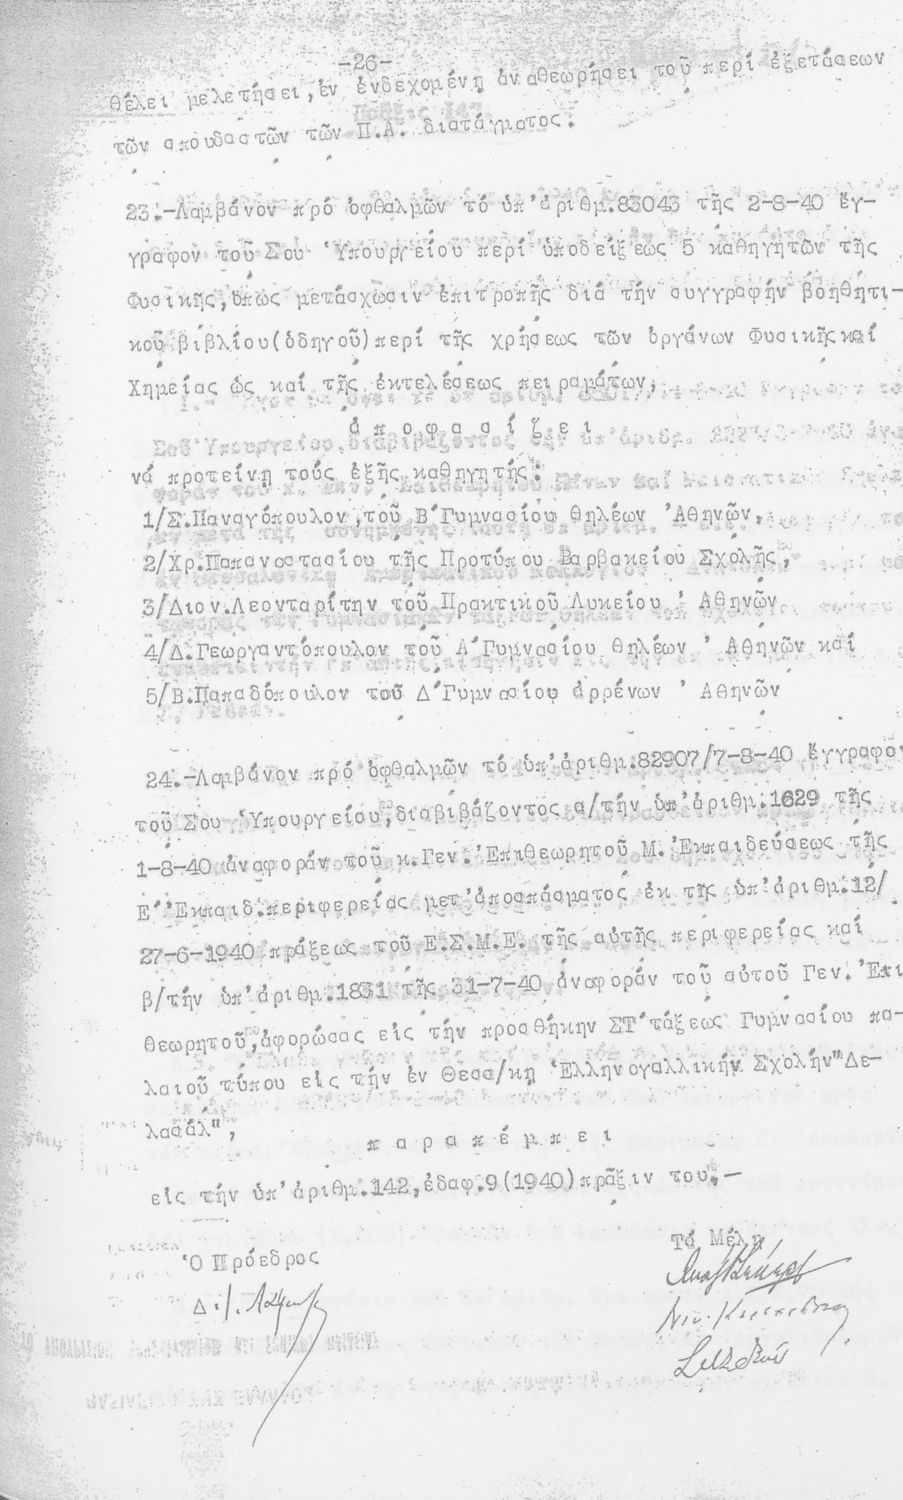 -26-
θέλει μελετήσει, ἐν ἐνδεχομένῃ ἀναθεωρήσει τοῦ περί ἐξετάσεων
τῶν σπουδαστῶν τῶν Π.Α. διατάγματος.
23.-Λαμβάνον πρό ὀφθαλμῶν τό ὑπ'ἀριθμ.83043 τῆς 2-8-40 ἔγ-
γραφον τοῦ Σου Ὑπουργείου περί ὑποδείξεως 5 καθηγητῶν τῆς
Φυσικῆς, ὅπως μετάσχωσιν ἐπιτροπῆς διά τήν συγγραφήν βοηθητι-
κοῦ βιβλίου(ὁδηγοῦ)περί τῆς χρήσεως τῶν ὀργάνων Φυσικῆς καί
Χημείας ὡς καί τῆς ἐκτελέσεως πειραμάτων,
ἀ π ο φ α σ ί ζ ε ι
νά προτείνῃ τούς ἑξῆς καθηγητής:
1/Σ.Παναγόπουλον, τοῦ Β΄Γυμνασίου θηλέων Ἀθηνῶν,
2/Χρ.Παπαναστασίου τῆς Προτύπου Βαρβακείου Σχολῆς,
3/Διον.Λεονταρίτην τοῦ Πρακτικοῦ Λυκείου Ἀθηνῶν
4/Δ.Γεωργαντόπουλον τοῦ Α΄Γυμνασίου θηλέων Ἀθηνῶν καί
5/Β.Παπαδόπουλον τοῦ Δ΄Γυμνασίου ἀρρένων Ἀθηνῶν
24.-Λαμβάνον πρό ὀφθαλμῶν τό ὑπ'ἀριθμ.82907/7-8-40 ἔγγραφον
τοῦ Σου Ὑπουργείου, διαβιβάζοντος α/τήν ὑπ'ἀριθμ.1629 τῆς
1-8-40 ἀναφοράν τοῦ κ.Γεν.Ἐπιθεωρητοῦ Μ.Ἐκπαιδεύσεως τῆς
Ε΄Ἐκπαιδ.περιφερείας μετ'ἀποσπάσματος ἐκ τῆς ὑπ'ἀριθμ.12/
27-6-1940 πράξεως τοῦ Ε.Σ.Μ.Ε. τῆς αὐτῆς περιφερείας καί
β/τήν ὑπ'ἀριθμ.1831 τῆς 31-7-40 ἀναφοράν τοῦ αὐτοῦ Γεν.Ἐπι
θεωρητοῦ, ἀφορώσας εἰς τήν προσθήκην ΣΤ΄τάξεως Γυμνασίου πα-
λαιοῦ τύπου εἰς τήν ἐν Θεσ/κῃ Ἑλληνογαλλικήν Σχολήν"Δε-
λασάλ",
π α ρ α π έ μ π ε ι
εἰς τήν ὑπ'ἀριθμ.142, ἐδαφ.9(1940)πρᾶξιν του.-
Ὁ Πρόεδρος
Τά Μέλη